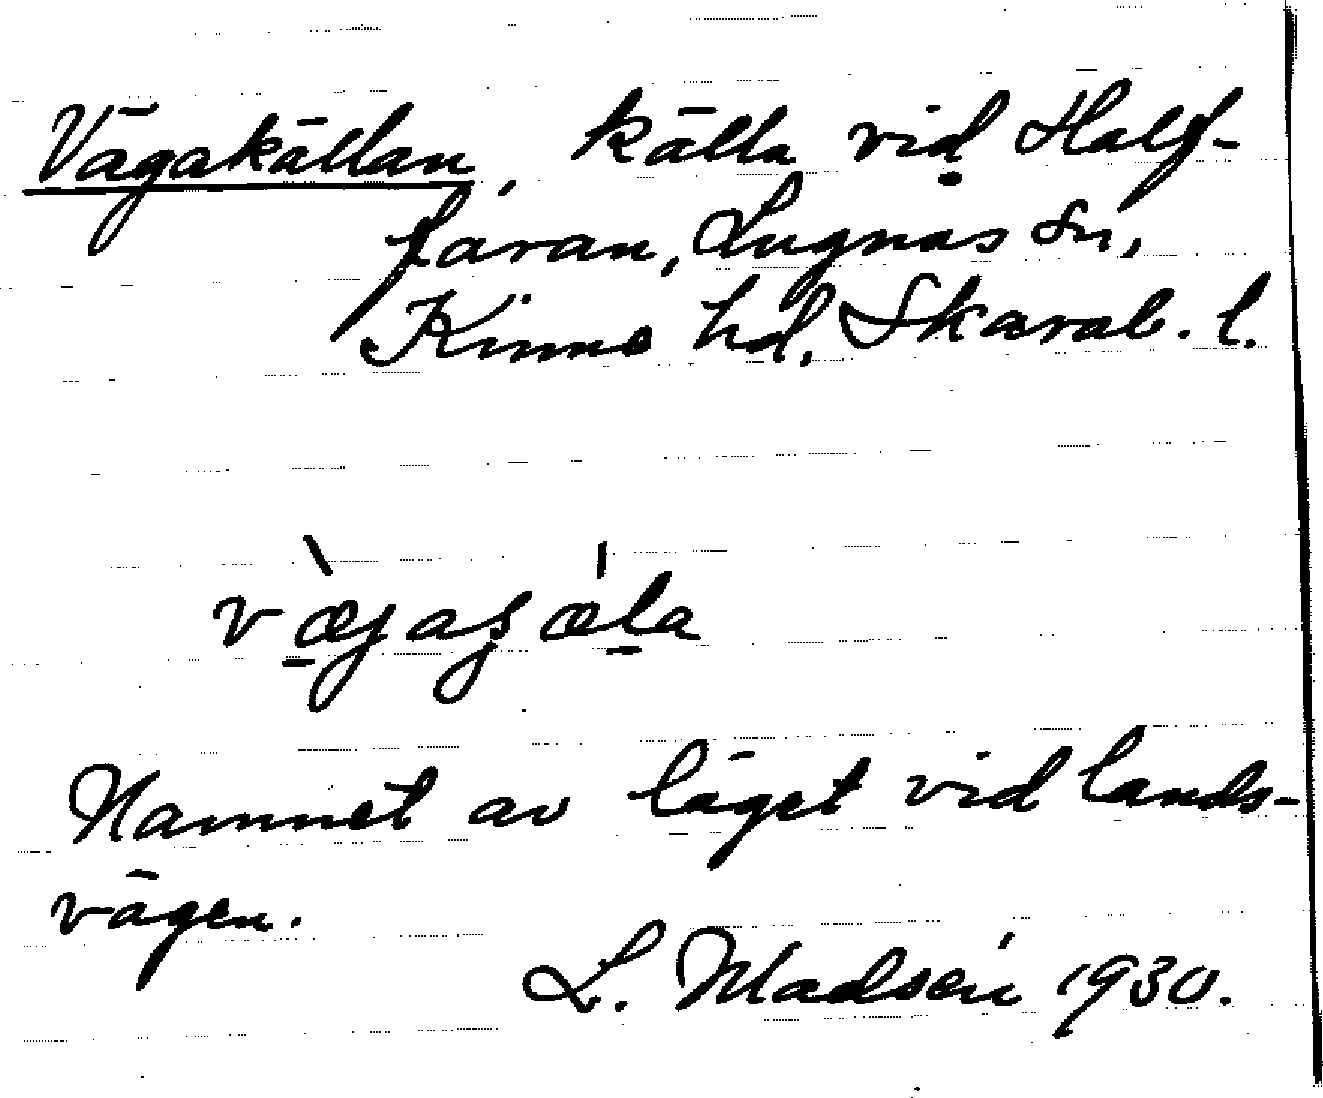 Vägakällan, källa vid Half-
faran, Lugnås sn,
Kinne hd, Skarab. l.
væ̀jaʂæ'la
Namnet av läget vid lands-
vägen.
L. Madsén 1930.